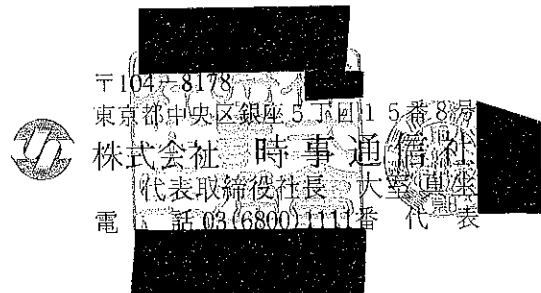 〒104-8178
東京都中央区銀座5丁目15番8号
株式会社 時事通信社
代表取締役社長 大室真生
電 話 03(6800)1111番 代 表